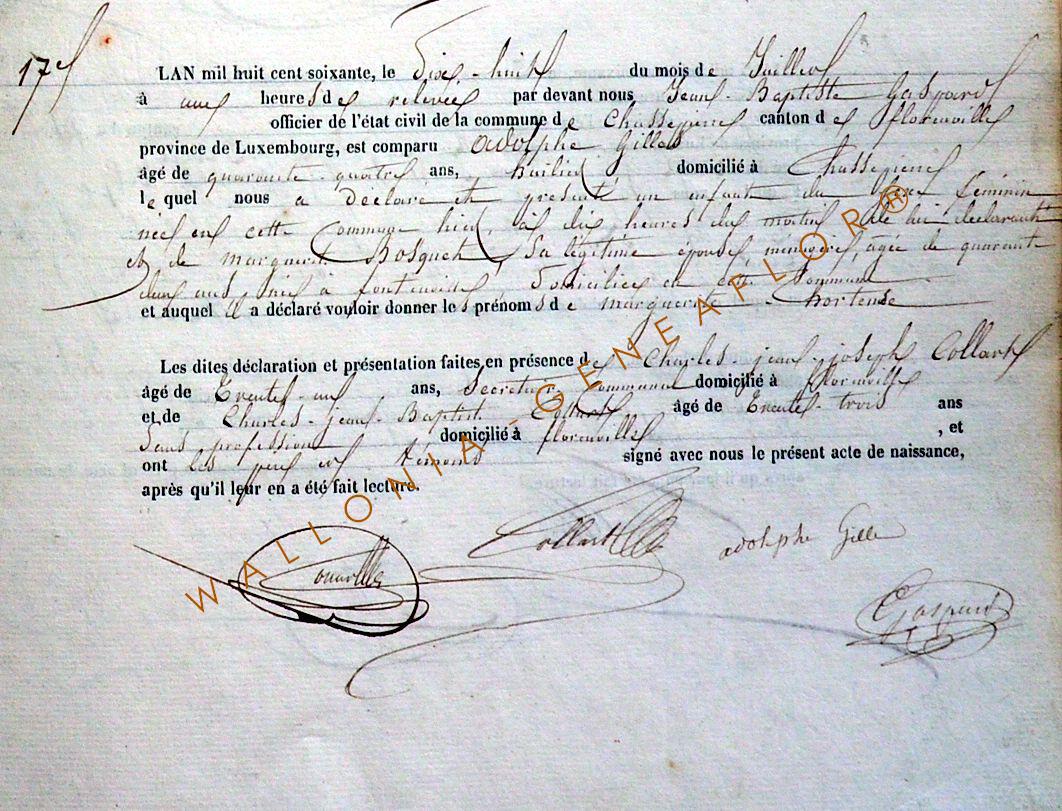 17e
L'AN mil huit cent soixante, le Dix-huit du mois de Juillet
à une heures de relevée par devant nous Jean-Baptiste Gaspard
officier de l'état civil de la commune de Chassepierre canton de florenville
province de Luxembourg, est comparu Adolphe Gillet
âgé de quarante-quatre ans, huilier domicilié à Chassepierre
lequel nous a déclaré et présenté un enfant du sexe féminin
née en cette Commune hier, à dix heures du matin de lui déclarant
et de marguerit. Bosquet, sa légitime épouse, âgée de quarante
deux ans née à fontenoille, Domiciliée en cette Commune
et auquel il a déclaré vouloir donner les prénoms de marguerite-hortense
Les dites déclaration et présentation faites en présence de Charles-jean-joseph Collart
âgé de Trente-un ans, Secretair Communal domicilié à florenville
et de Charles-jean-Baptist. âgé de Trente-trois ans
Sans profession domicilié à florenville, et
ont les pere et Témoins signé avec nous le présent acte de naissance,
après qu'il leur en a été fait lecture.
Collart adolphe Gille
Gaspard
WALLONIA-GENEAFLOR®